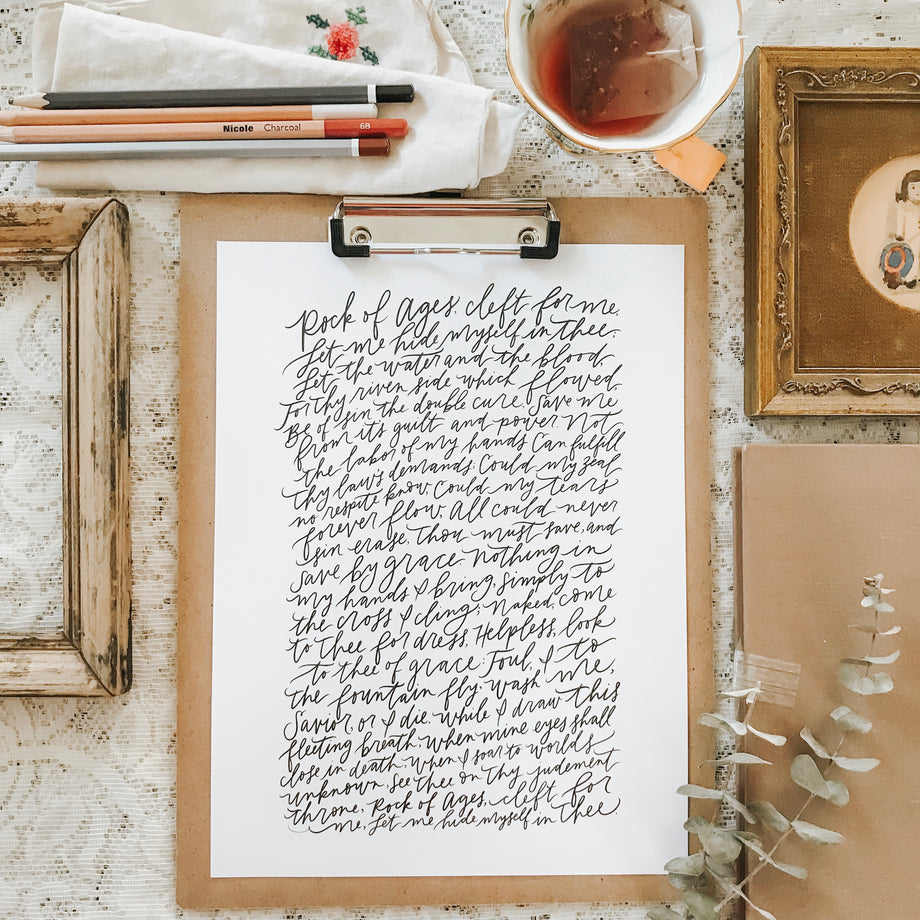 Nicole Charcoal 6B
Rock of Ages, cleft for me,
Let me hide myself in Thee;
Let the water and the blood,
For thy riven side which flowed,
Be of sin the double cure, Save me
from its guilt and power Not
the labor of my hands Can fulfill
thy law's demands; Could my zeal
no respite know, Could my tears
forever flow, All could never
sin erase, Thou must save, and
save by grace. Nothing in
my hands I bring, simply to
the cross I cling; Naked, come
to Thee for dress, Helpless, look
to thee of grace: Foul, I to
the fountain fly; wash me,
Savior, or I die. While I draw this
fleeting breath, When mine eyes shall
close in death, When I soar to worlds
unknown, see Thee on Thy judgement
throne, Rock of Ages, cleft for
me, Let me hide myself in Thee.